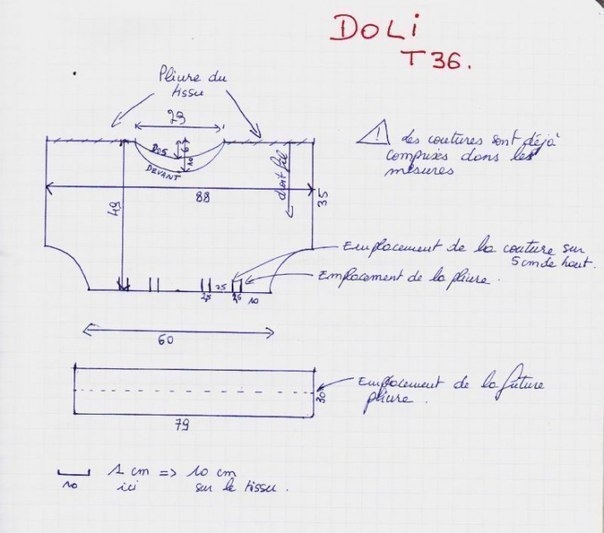 DOLi
T36.
Pliure du
tissu
29
⚠ les coutures sont déjà
comprises dans les
mesures
DOS
6
10
DEVANT
droit fil
49
88
35
Emplacement de la couture sur
5cm de haut.
Emplacement de la pliure.
25
10
60
Emplacement de la future
pliure.
30
79
1 cm => 10 cm
10
ici sur le tissu.